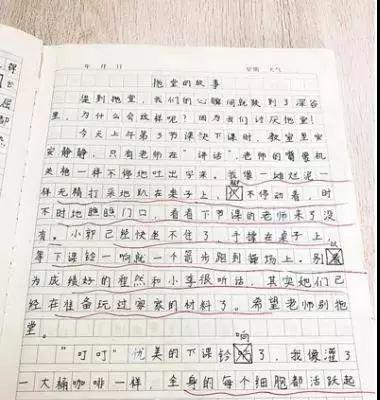 年 月 日 星期 天气
拖堂的故事
提到拖堂，我们的心瞬间就跌到了深谷
里，为什么会这样呢？因为我们讨厌拖堂！
今天上午第3节课快下课时，教室里安
安静静，只有老师在“讲话”，老师的嘴像机
关枪一样不停地吐出字来。我像一堆烂泥一
样无精打采地趴在桌子上，不停动着，时
不时地瞧瞧门口，看看下节课的老师来了没
有。小郭已经快坐不住了，手撑在桌子上，
等下课铃一响就一个箭步跑到操场上。别
为成绩好的崔然和小李很听话，其实她们已
经在准备玩过家家的材料了。希望老师别拖
堂。
响
“叮叮”优美的下课铃了，我像灌了
一大桶咖啡一样，全身的每个细胞都活跃起